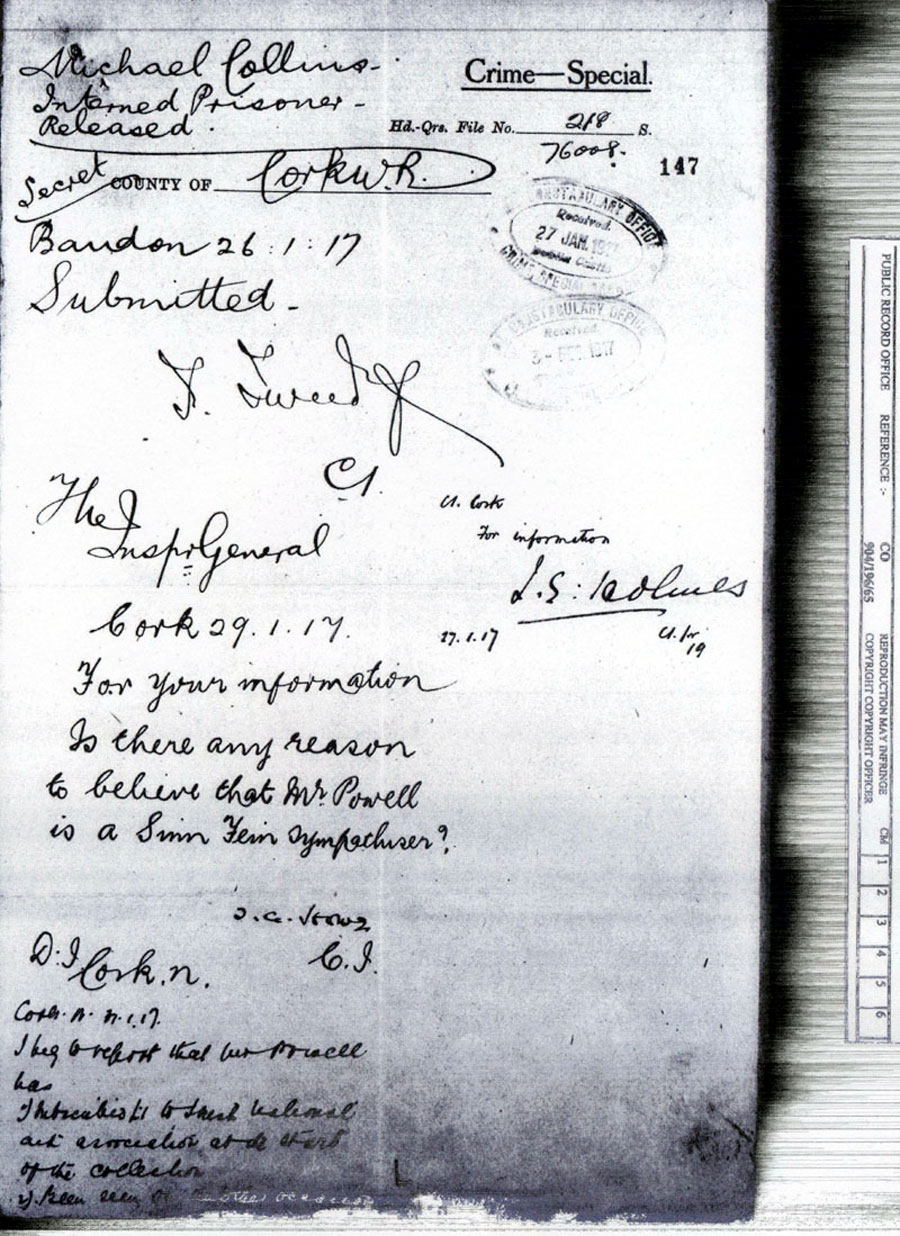 Michael Collins -
Interned Prisoner -
Released.
Crime—Special.
Hd.-Qrs. File No. 218 S.
76008.
147
Secret
COUNTY OF Cork W.R.
CONSTABULARY OFFICE
Received
27 JAN. 1917
CRIME SPECIAL
Bandon 26:1:17
Submitted -
CONSTABULARY OFFICE
Received
3 - FEB. 1917
CI
The
Inspr General
CI. Cork
For information
27.1.17
Cork 29.1.17.
For your information
Is there any reason
to believe that Mr. Powell
is a Sinn Fein sympathiser?
C.I.
D.I
Cork. N.
I beg to report that Mr Powell
has
National
association at the start
of the collection
2). Been seen
another occasion
PUBLIC RECORD OFFICE
REFERENCE :-
CO
904/196/65
REPRODUCTION MAY INFRINGE
COPYRIGHT COPYRIGHT OFFICER
CM
1
2
3
4
5
6